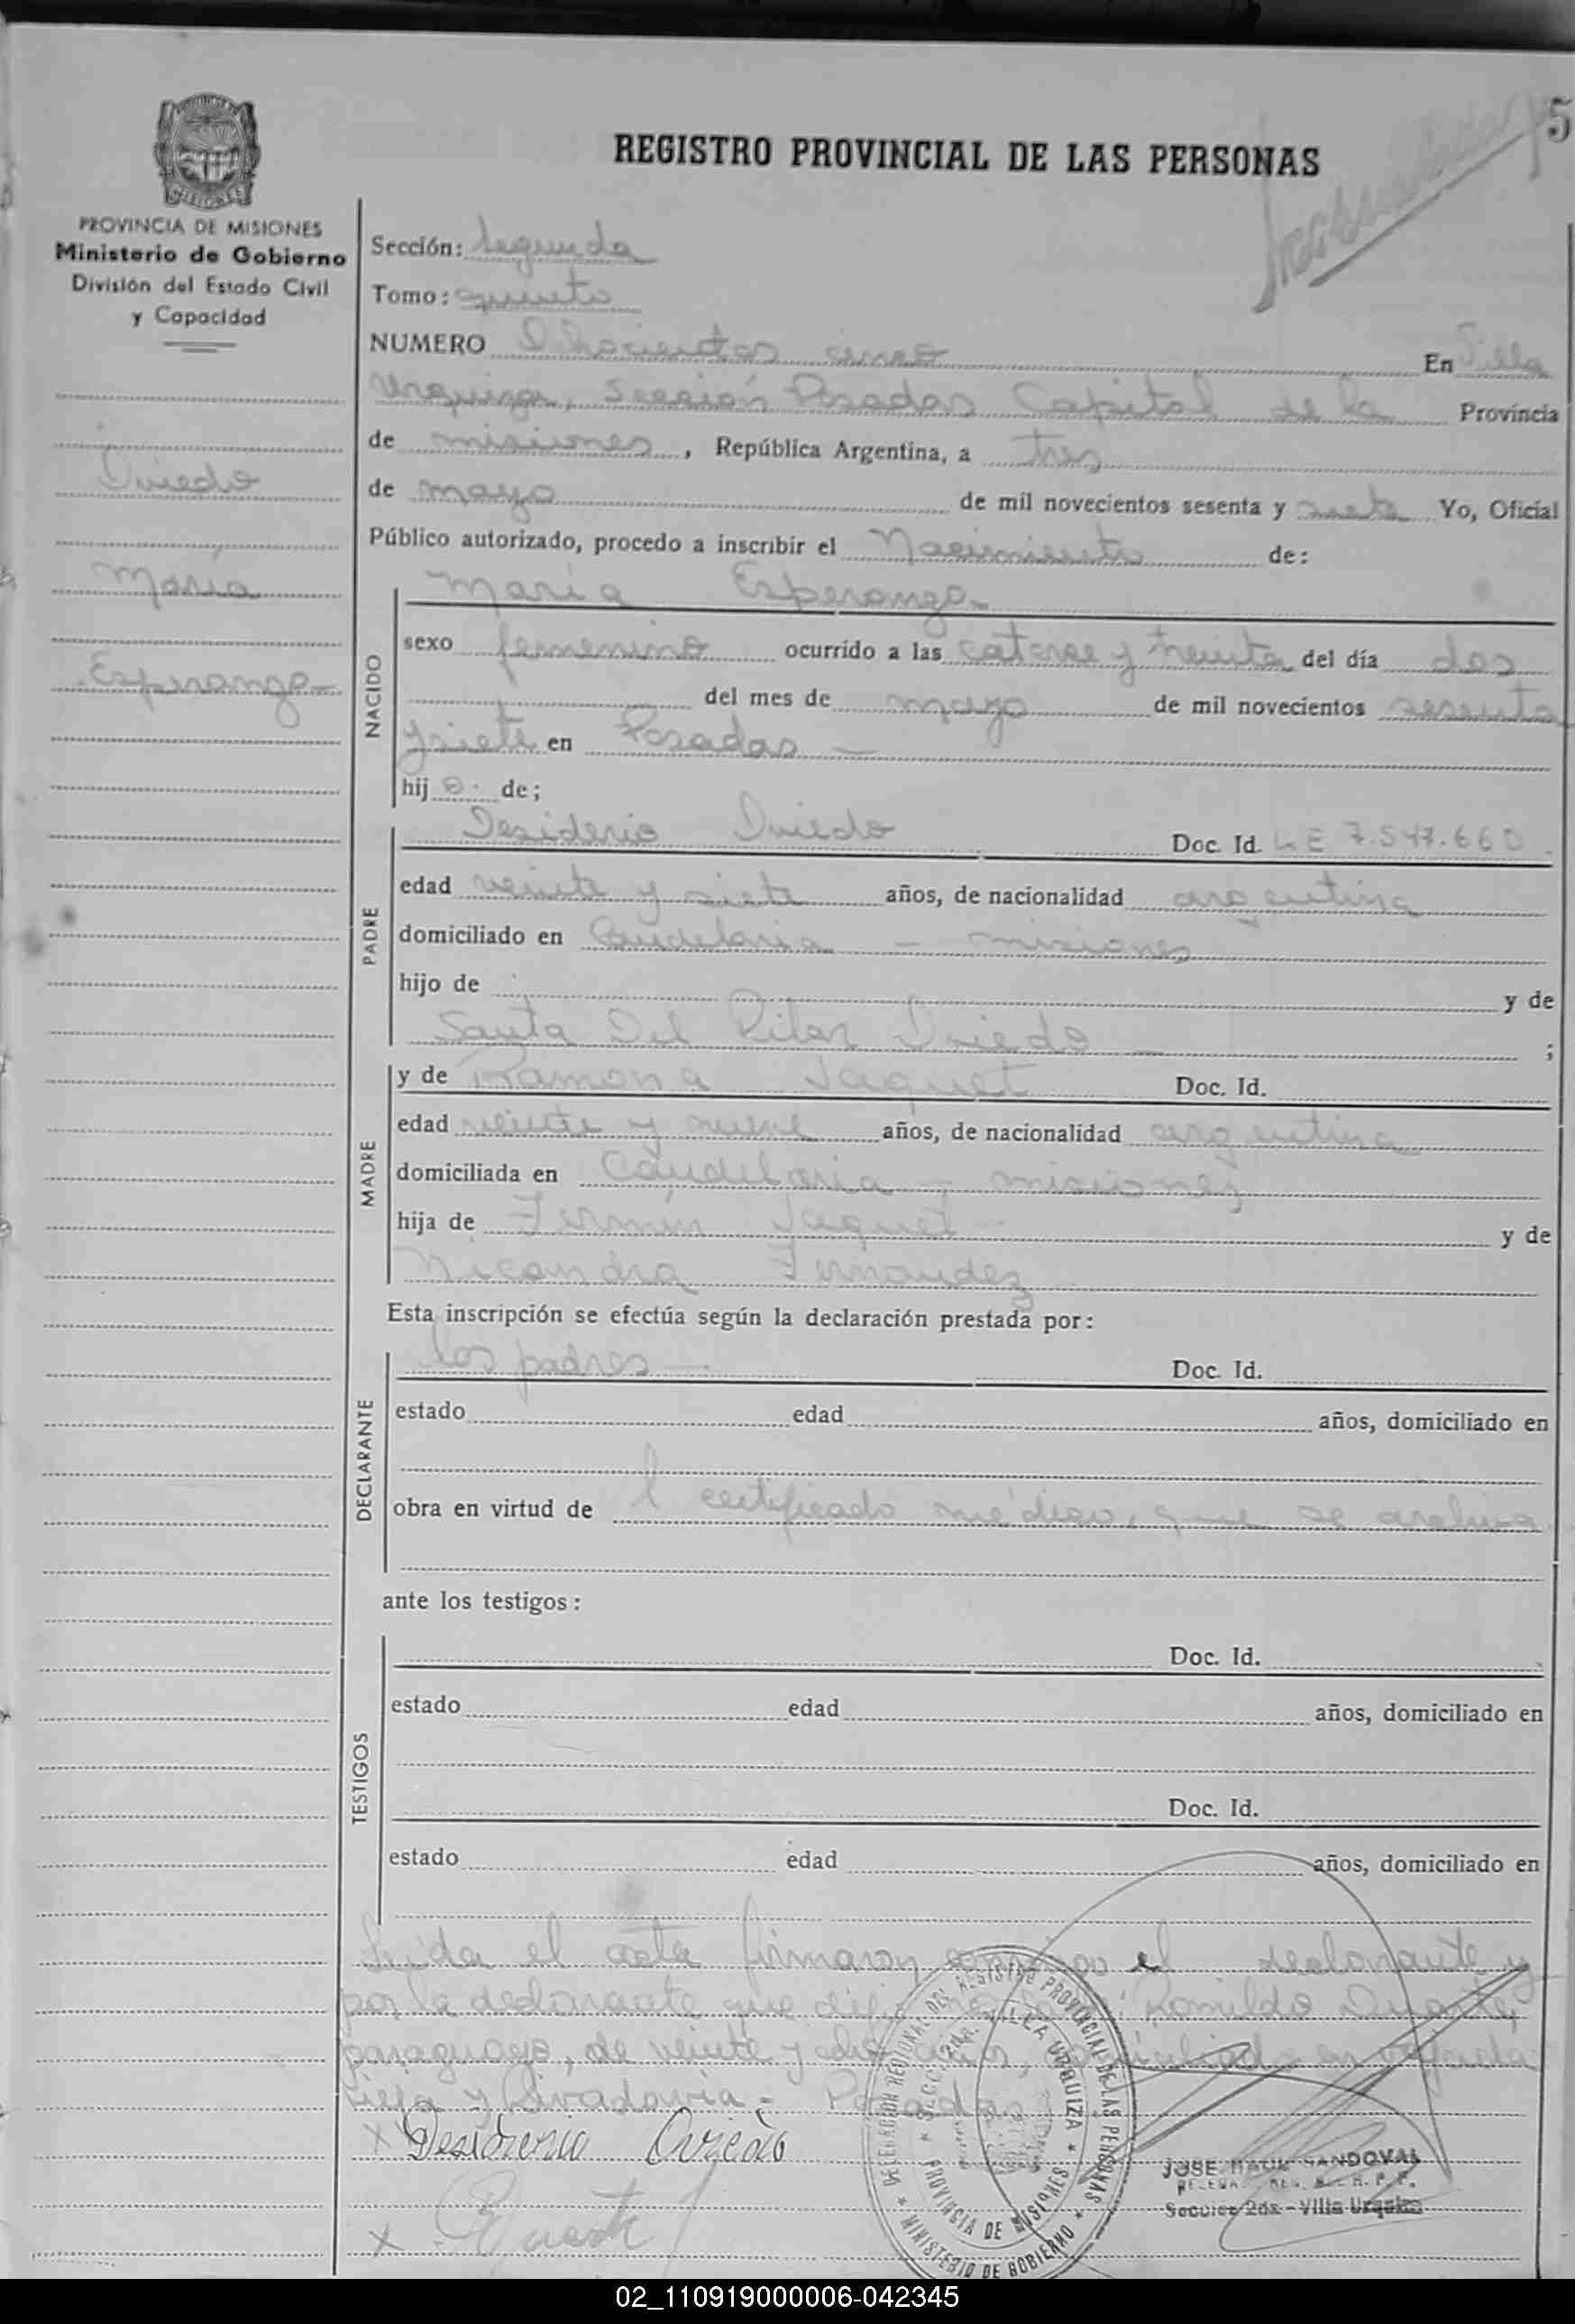 5
REGISTRO PROVINCIAL DE LAS PERSONAS
MISIONES
PROVINCIA DE MISIONES
Ministerio de Gobierno
División del Estado Civil
y Capacidad
Oviedo
María
Esperanza
Sección: Segunda
Tomo: quinto
NUMERO Ochocientos cinco En Villa
Urquiza, Sección Posadas Capital de la Provincia
de misiones, República Argentina, a tres
de mayo de mil novecientos sesenta y siete Yo, Oficial
Público autorizado, procedo a inscribir el Nacimiento de:
NACIDO
María Esperanza
sexo femenino ocurrido a las catorce y treinta del día dos
del mes de mayo de mil novecientos sesenta
y siete en Posadas —
hij a de;
PADRE
Desiderio Oviedo Doc. Id. L E 7.547.660
edad veinte y siete años, de nacionalidad argentina
domiciliado en Candelaria - misiones
hijo de y de
Santa Del Pilar Oviedo ;
MADRE
y de Ramona Jaquet Doc. Id.
edad veinte y nueve años, de nacionalidad argentina
domiciliada en Candelaria - misiones
hija de Fermín Jaquet - y de
Nicandra Fernandez
Esta inscripción se efectúa según la declaración prestada por:
DECLARANTE
los padres — Doc. Id.
estado edad años, domiciliado en
obra en virtud de l certificado médico, que se archiva
ante los testigos:
TESTIGOS
Doc. Id.
estado edad años, domiciliado en
Doc. Id.
estado edad años, domiciliado en
Leída el acta firmaron conmigo el declarante y
por la declarante que dijo Romildo Duarte,
paraguayo, de veinte y ocho años, domiciliado en
y Rivadavia - Posadas
x Desiderio Oviedo
x
DELEGACION REGIONAL DEL REGISTRO PROVINCIAL DE LAS PERSONAS
MINISTERIO DE GOBIERNO
SECC. 2da. VILLA URQUIZA
PROVINCIA DE MISIONES
JOSE RAUL SANDOVAL
Seccion 2da - Villa Urquiza
02_110919000006-042345